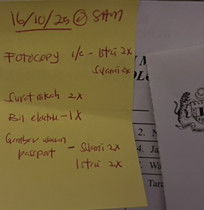 16/10/25 @ 8AM
Fotocopy i/c - Istri 2x
Suami 2x
Surat nikah 2x
Bil elektrik - 1x
Gambar ukuran
passport - Suami 2x
Istri 2x
M
OL
2. N
J
Wa
Tara